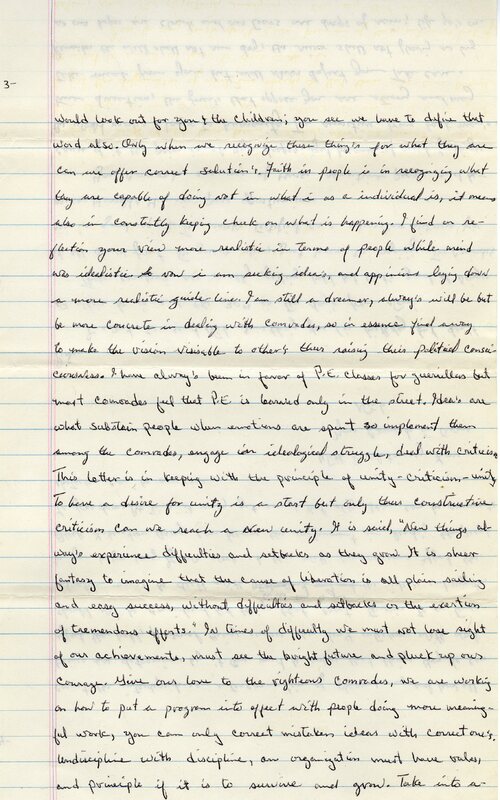 3-
would look out for you & the children; you see we have to define that
word also. Only when we recognize these thing's for what they are
can we offer correct solution's. Faith in people is in recognizing what
they are capable of doing not in what i as a individual is, it means
also in constantly keping check on what is happening. I find in re-
flection your view more realistic in terms of people while mind
was idealistic so now i am seeking idea's, and appinions laying down
a more realistic guide line. I am still a dreamer, alway's will be but
be more concrete in dealing with comrades, so in essence find away
to make the vision visable to other's thus raising their political consci-
ousness. I have alway's been in favor of P.E. classes for guerillas but
most comrades feel that P.E is learned only in the street. Idea's are
what substain people when emotions are spent so implement them
among the comrades, engage in ideological struggle, deal with criticism
This letter is in keeping with the principle of unity-criticism-unity
To have a desire for unity is a start but only thur constructive
criticism can we reach a new unity. It is said, "New things al-
way's experience difficulties and setbacks as they grow. It is sheer
fantasy to imagine that the cause of liberation is all plain sailing
and easy success, without difficulties and setbacks or the exertion
of tremendous efforts." In times of difficulty we must not lose sight
of our achievements, must see the bright future and pluck up our
courage. Give our love to the righteous comrades, we are working
on how to put a program into effect with people doing more meaning-
ful work, you can only correct mistaken ideas with correct one's,
undiscipline with discipline, an organization must have rules,
and principle if it is to survive and grow. Take into a-